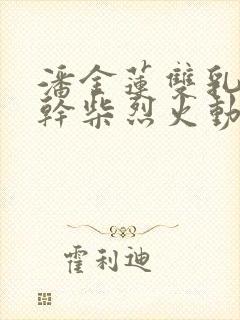 潘金蓮雙乳
幹柴烈火動
霍利迪